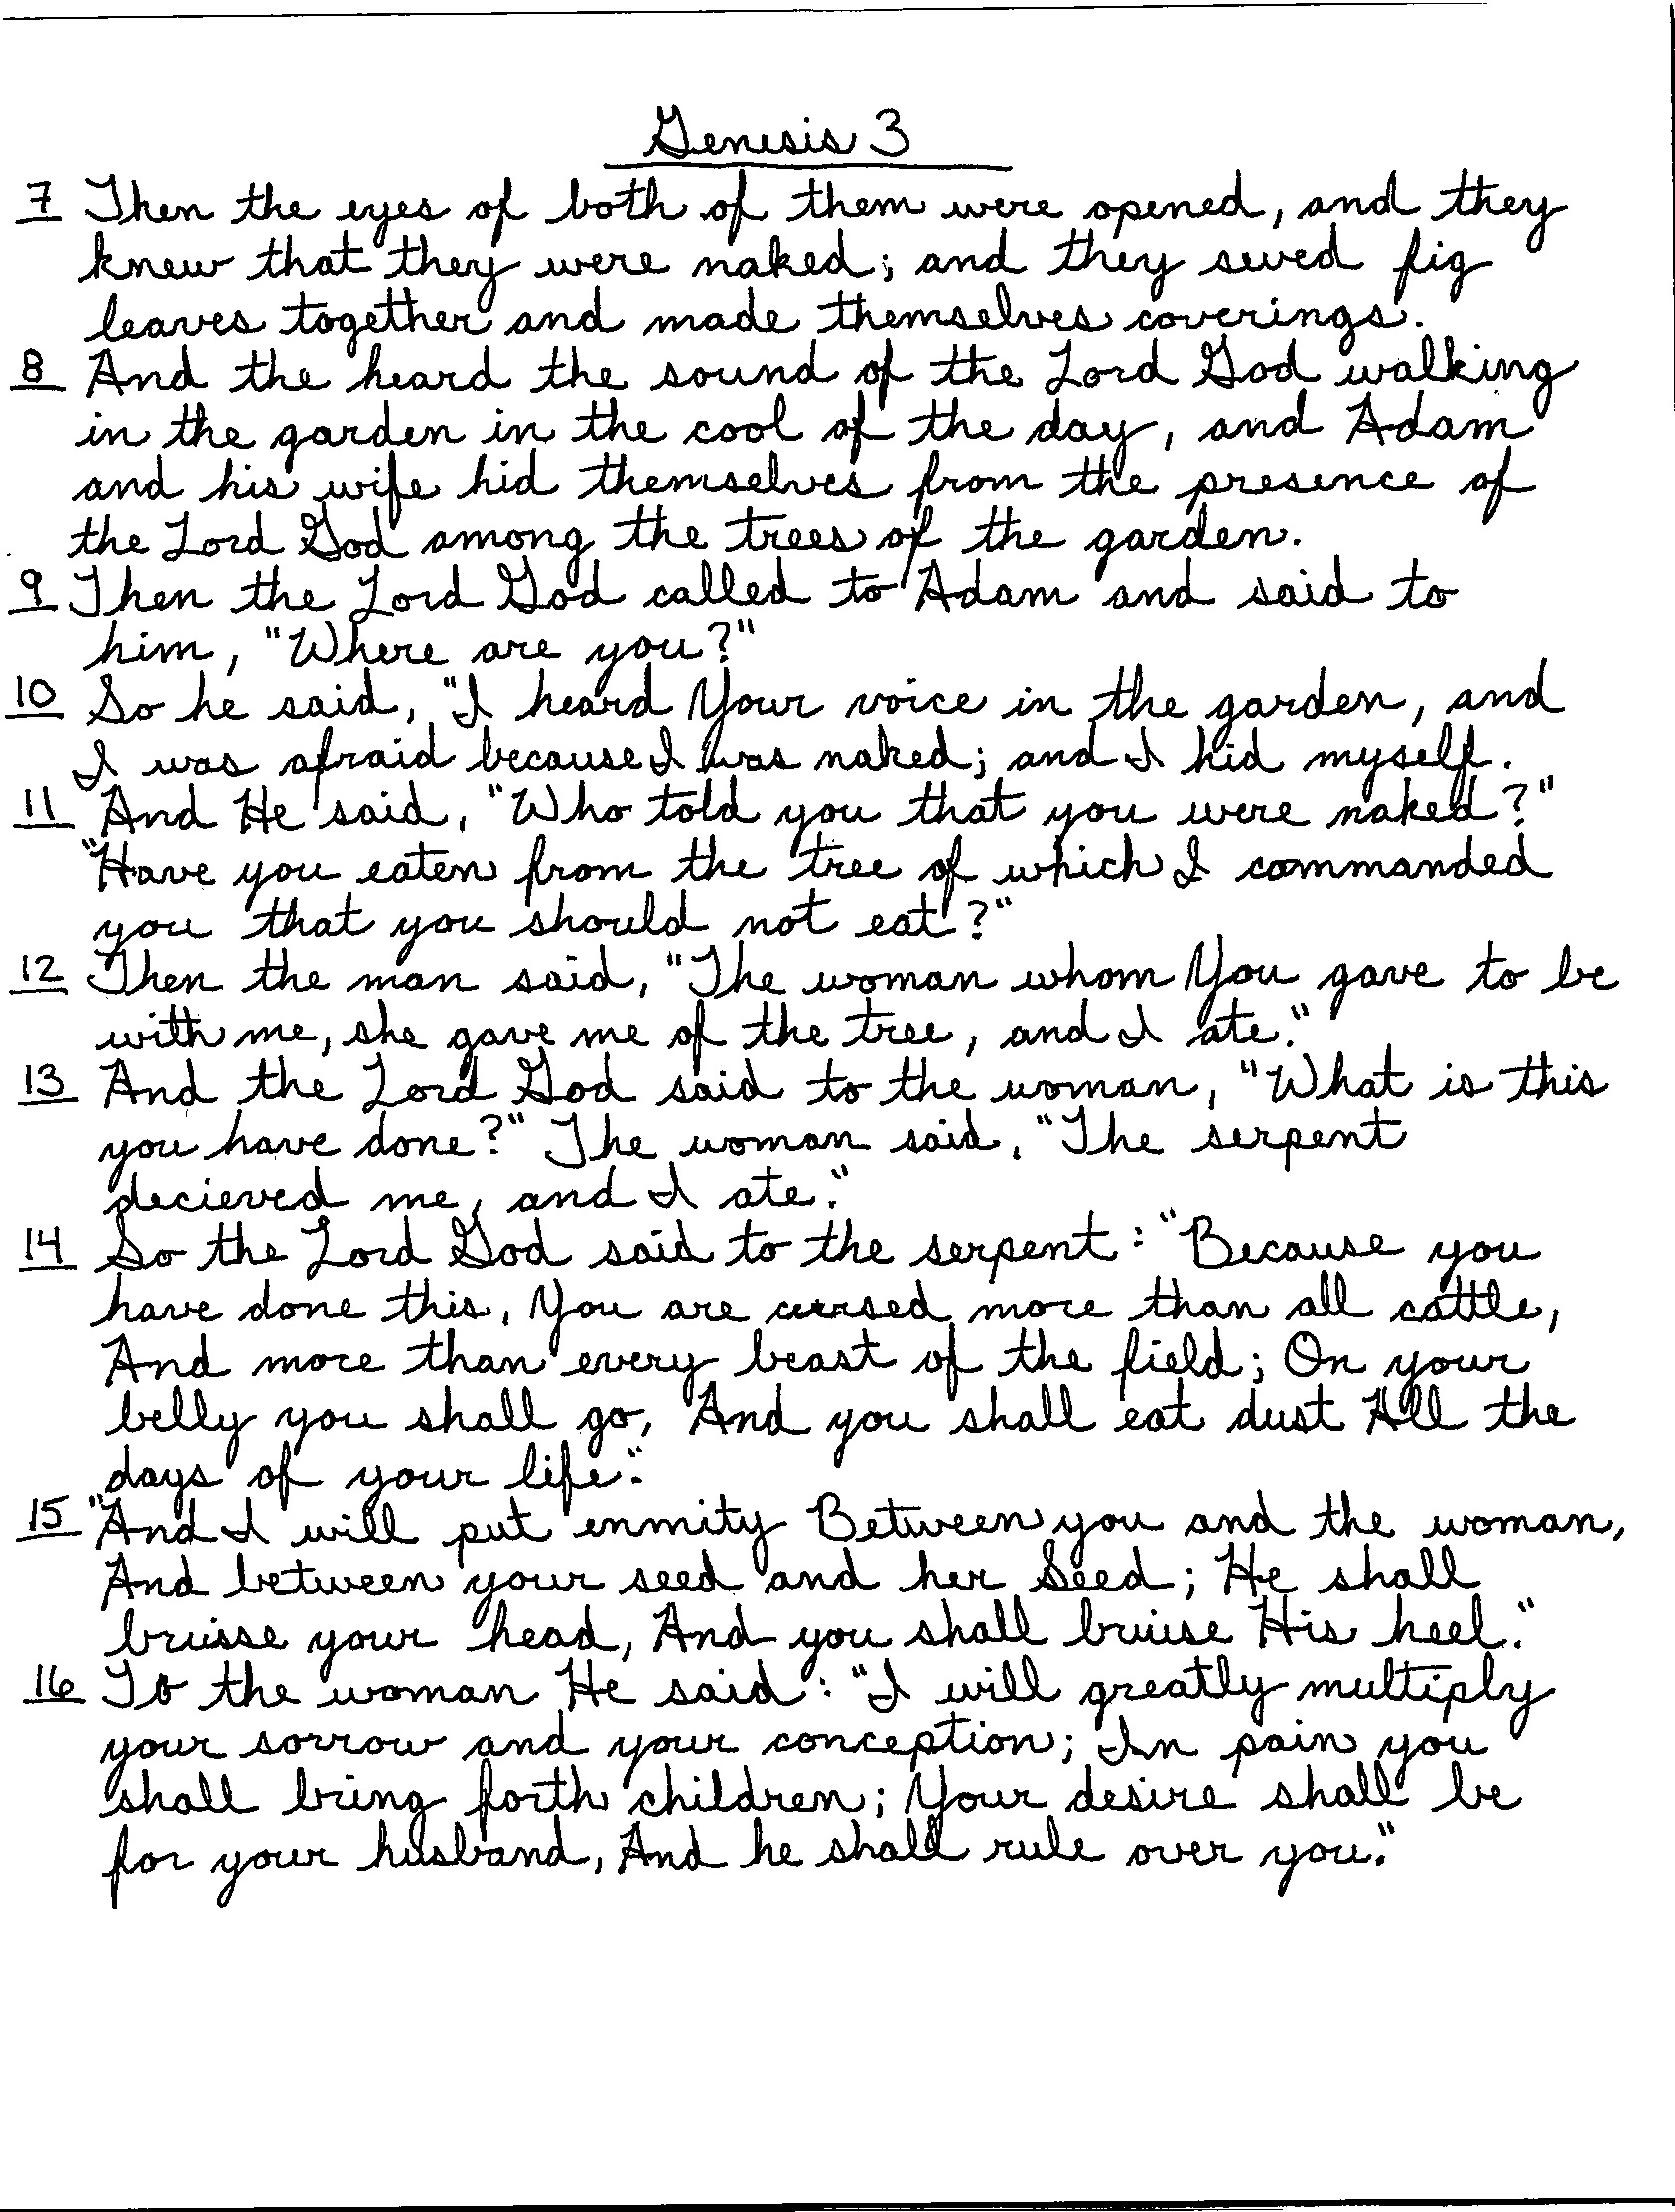 Genesis 3
7 Then the eyes of both of them were opened, and they
knew that they were naked; and they sewed fig
leaves together and made themselves coverings.
8 And the heard the sound of the Lord God walking
in the garden in the cool of the day, and Adam
and his wife hid themselves from the presence of
the Lord God among the trees of the garden.
9 Then the Lord God called to Adam and said to
him, "Where are you?"
10 So he said, "I heard Your voice in the garden, and
I was afraid because I was naked; and I hid myself.
11 And He said, "Who told you that you were naked?"
"Have you eaten from the tree of which I commanded
you that you should not eat?"
12 Then the man said, "The woman whom You gave to be
with me, she gave me of the tree, and I ate."
13 And the Lord God said to the woman, "What is this
you have done?" The woman said, "The serpent
decieved me, and I ate."
14 So the Lord God said to the serpent: "Because you
have done this, You are cursed more than all cattle,
And more than every beast of the field; On your
belly you shall go, And you shall eat dust All the
days of your life."
15 "And I will put enmity Between you and the woman,
And between your seed and her Seed; He shall
bruise your head, And you shall bruise His heel."
16 To the woman He said: "I will greatly multiply
your sorrow and your conception; In pain you
shall bring forth children; Your desire shall be
for your husband, And he shall rule over you."